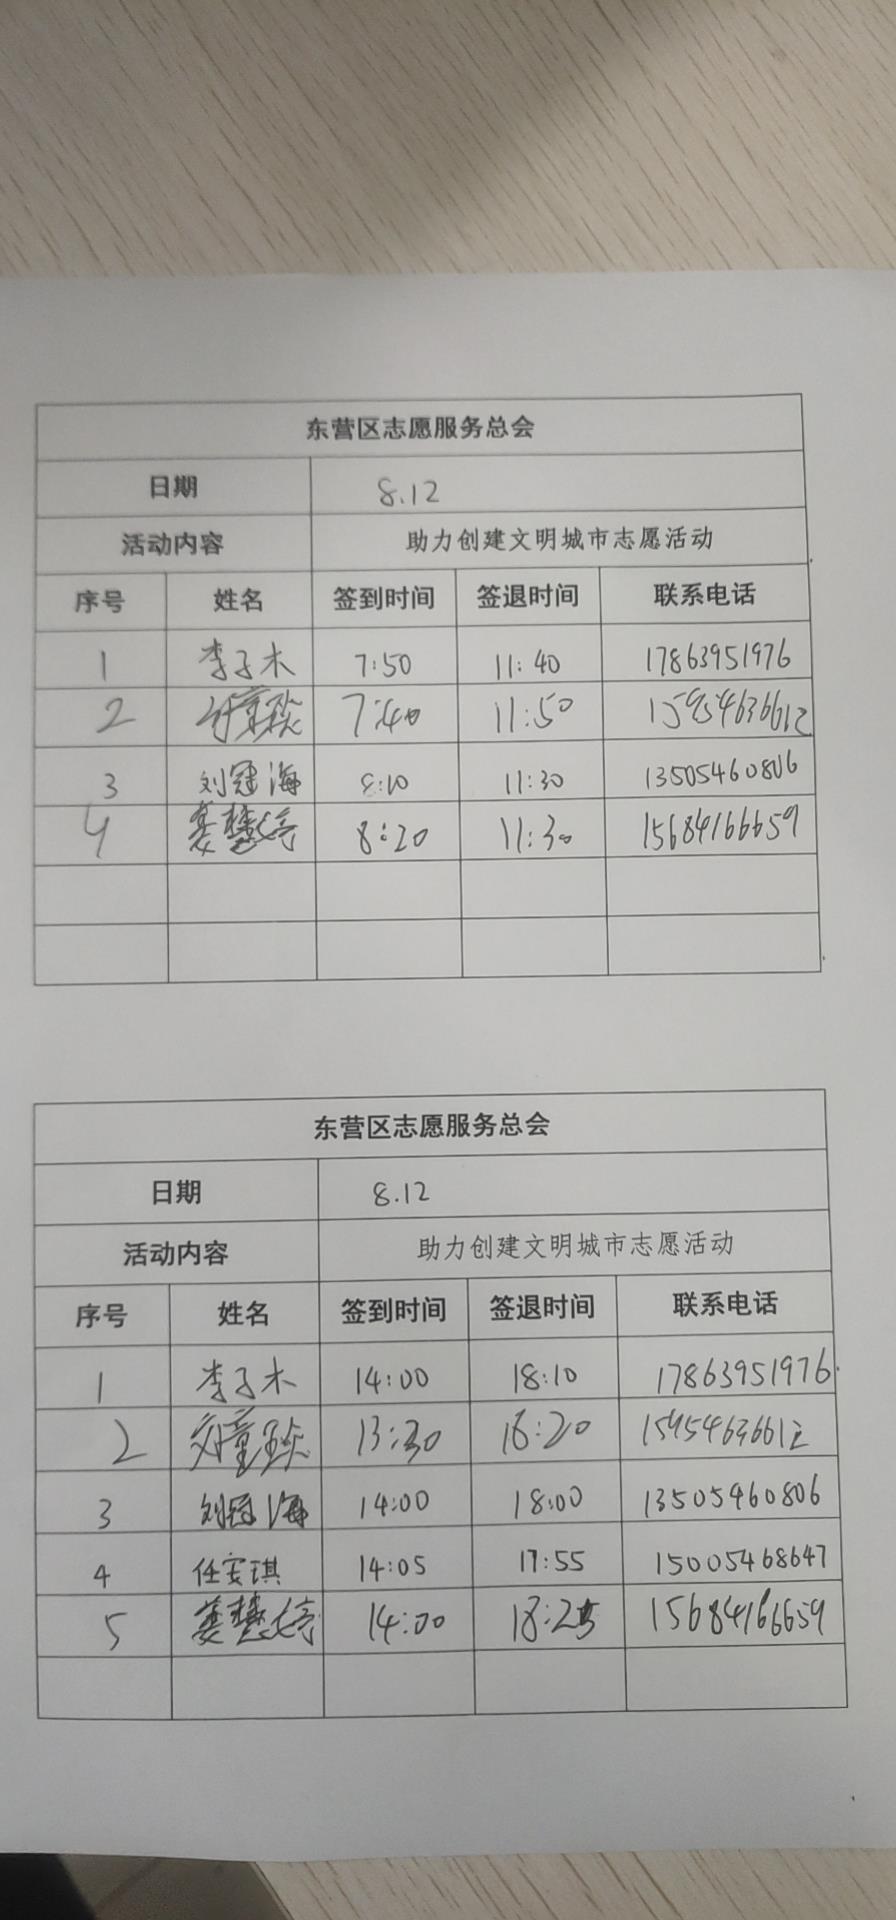 东营区志愿服务总会
日期 8.12
活动内容 助力创建文明城市志愿活动
序号 姓名 签到时间 签退时间 联系电话
1 李子木 7:50 11:40 17863951976
2 7:40 11:50 15954636612
3 刘冠海 8:10 11:30 13505460806
4 8:20 11:30 15684166659
东营区志愿服务总会
日期 8.12
活动内容 助力创建文明城市志愿活动
序号 姓名 签到时间 签退时间 联系电话
1 李子木 14:00 18:10 17863951976
2 13:30 18:20 15954636612
3 刘冠海 14:00 18:00 13505460806
4 任安琪 14:05 17:55 15005468647
5 14:00 18:25 15684166659